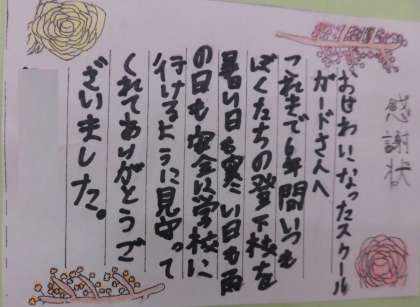 感謝状
おせわになったスクール
ガードさんへ
これまで6年間いつも
ぼくたちの登下校を
暑い日も寒い日も雨
の日も安全に学校に
行けるように見守って
くれてありがとうご
ざいました。